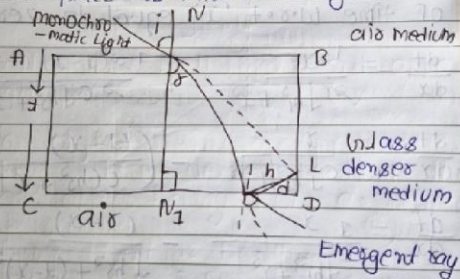 monochro
-matic Light
i
N
air medium
A
B
r
t
Glass
denser
medium
h
L
d
C
air
N1
D
i
Emergend ray